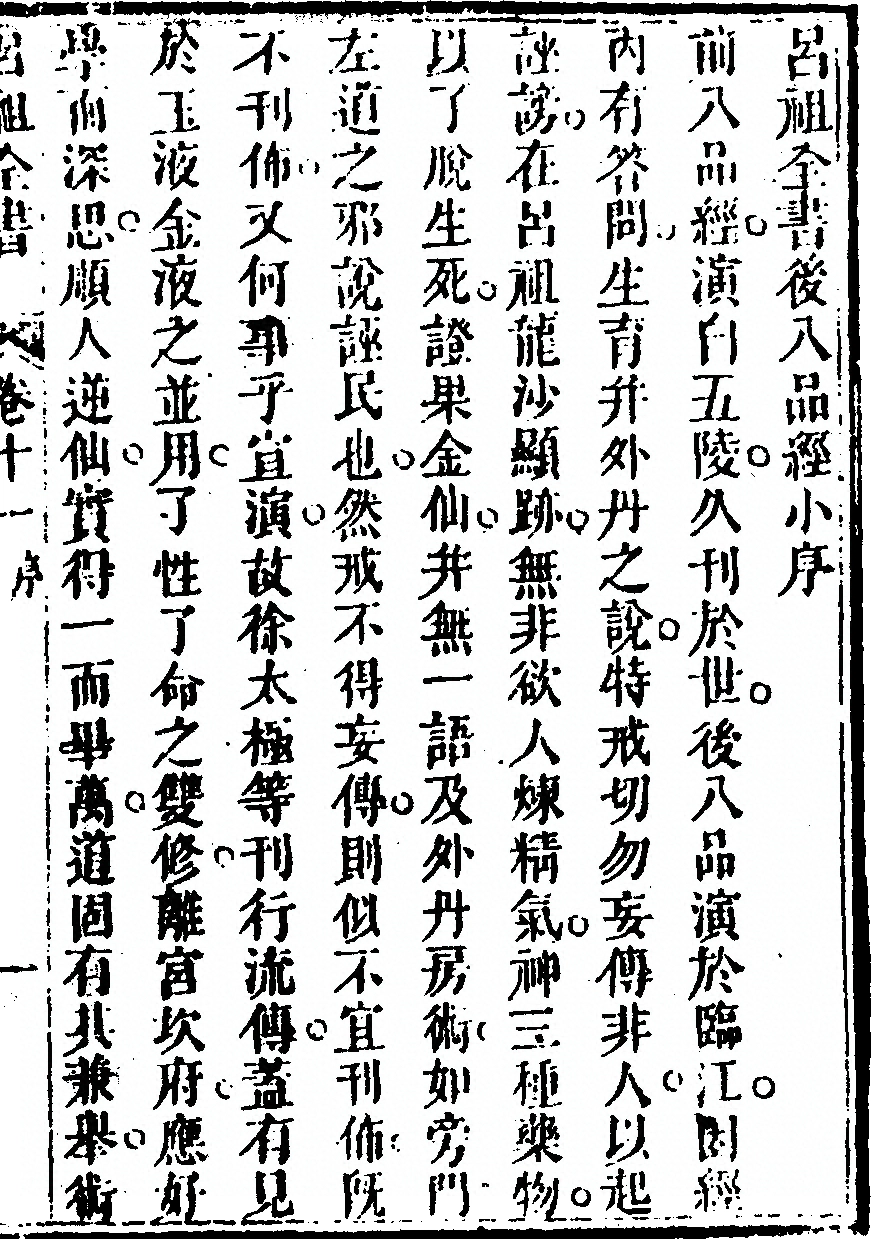 呂祖全書後八品經小序
前八品經演自五陵久刊於世後八品演於臨江因經
內有答問生育并外丹之說特戒切勿妄傳非人以起
誣謗在呂祖龍沙顯跡無非欲人煉精氣神三種藥物
以了脫生死證果金仙并無一語及外丹房術如旁門
左道之邪說誣民也然戒不得妄傳則似不宜刊佈旣
不刊佈又何事乎宣演故徐太極等刊行流傳蓋有見
於玉液金液之並用了性了命之雙修離宮坎府應好
學而深思順人逆仙實得一而畢萬道固有共兼舉術
呂祖全書 卷十一 序 一